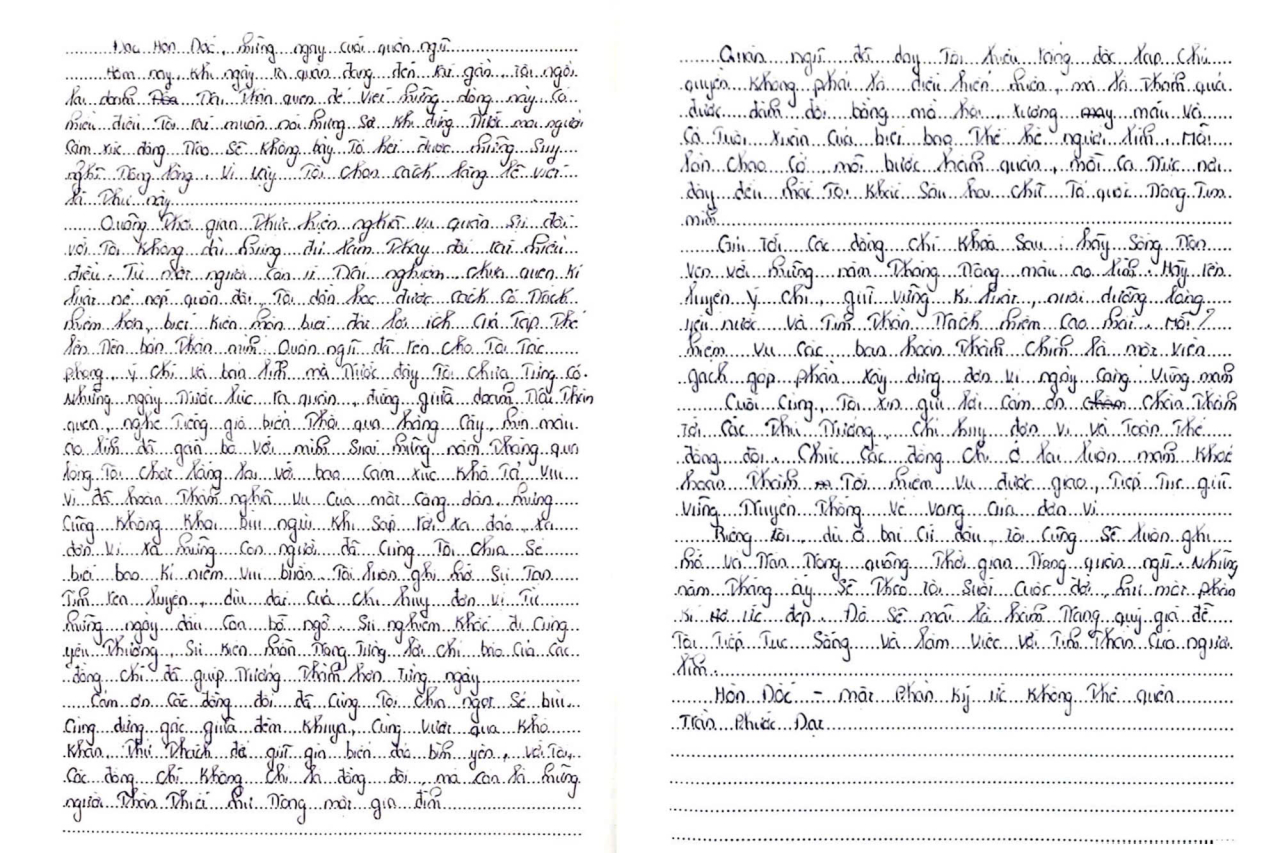 Đảo Hòn Dóc, những ngày cuối quân ngũ
Hôm nay, khi ngày ra quân đang đến rất gần, tôi ngồi
lại doanh trại thân quen để viết những dòng này. Có
nhiều điều tôi rất muốn nói nhưng sợ khi đứng trước mọi người
cảm xúc dâng trào sẽ không bày tỏ hết được những suy
nghĩ trong lòng. Vì vậy tôi chọn cách lặng lẽ viết
lá thư này
Quãng thời gian thực hiện nghĩa vụ quân sự đối
với tôi không dài nhưng đủ làm thay đổi rất nhiều
điều. Từ một người còn ít trải nghiệm, chưa quen kỉ
luật nề nếp quân đội, tôi dần học được cách có trách
nhiệm hơn, biết kiên nhẫn biết đặt lợi ích của tập thể
lên trên bản thân mình. Quân ngũ đã rèn cho tôi tác
phong, ý chí và bản lĩnh mà trước đây tôi chưa từng có.
Những ngày trước lúc ra quân, đứng giữa doanh trại thân
quen, nghe tiếng gió biển thổi qua hàng cây, nhìn màu
áo lính đã gắn bó với mình suốt những năm tháng qua
lòng tôi chợt lắng lại với bao cảm xúc khó tả vui
vì đã hoàn thành nghĩa vụ của một công dân, nhưng
cũng không khỏi bùi ngùi khi sắp rời xa đảo, xa
đơn vị xa những con người đã cùng tôi chia sẻ
biết bao kỉ niệm vui buồn. Tôi luôn ghi nhớ sự tận
tình rèn luyện, dìu dắt của chỉ huy đơn vị từ
những ngày đầu còn bỡ ngỡ. Sự nghiêm khắc đi cùng
yêu thương, sự kiên nhẫn trong từng lời chỉ bảo của các
đồng chí đã giúp trưởng thành hơn từng ngày
Cảm ơn các đồng đội đã cùng tôi chia ngọt sẻ bùi
cùng đứng gác giữa đêm khuya, cùng vượt qua khó
khăn, thử thách để giữ gìn biển đảo bình yên, với tôi,
các đồng chí không chỉ là đồng đội, mà còn là những
người thân thiết như trong một gia đình
Quân ngũ đã dạy tôi hiểu rằng độc lập chủ
quyền không phải là điều hiển nhiên, mà là thành quả
được đánh đổi bằng mồ hôi, xương máu và
cả tuổi xuân của biết bao thế hệ người lính. Mỗi
lần chào cờ, mỗi bước hành quân, mỗi ca trực nơi
đây đều nhắc tôi khắc sâu hai chữ Tổ quốc trong tim
mình
Gửi tới các đồng chí khóa sau: hãy sống trọn
vẹn với những năm tháng trong màu áo lính. Hãy rèn
luyện ý chí, giữ vững kỉ luật, nuôi dưỡng lòng
yêu nước và tinh thần trách nhiệm cao nhất. Mỗi
nhiệm vụ các bạn hoàn thành chính là một viên
gạch góp phần xây dựng đơn vị ngày càng vững mạnh
Cuối cùng, tôi xin gửi lời cảm ơn chân thành
tới các thủ trưởng, chỉ huy đơn vị và toàn thể
đồng đội. Chúc các đồng chí ở lại luôn mạnh khoẻ
hoàn thành tốt nhiệm vụ được giao, tiếp tục giữ
vững truyền thống vẻ vang của đơn vị
Riêng tôi, dù ở bất cứ đâu, tôi cũng sẽ luôn ghi
nhớ và trân trọng quãng thời gian trong quân ngũ. Những
năm tháng ấy sẽ theo tôi suốt cuộc đời, như một phần
kí ức đẹp. Đó sẽ mãi là hành trang quý giá để
tôi tiếp tục sống và làm việc với tinh thần của người
lính.
Hòn Dóc - một phần ký ức không thể quên
Trần Phước Đạt